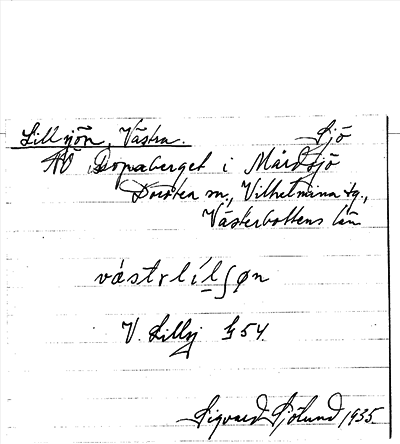 Lillsjön, Västra. Sjö
NÖ Dopaberget i Mårdsjö
Dorotea sn., Vilhelmina tg.,
Västerbottens län
västrlilʃøn
V. Lillsj G54.
Sigvard Sjölund 1935